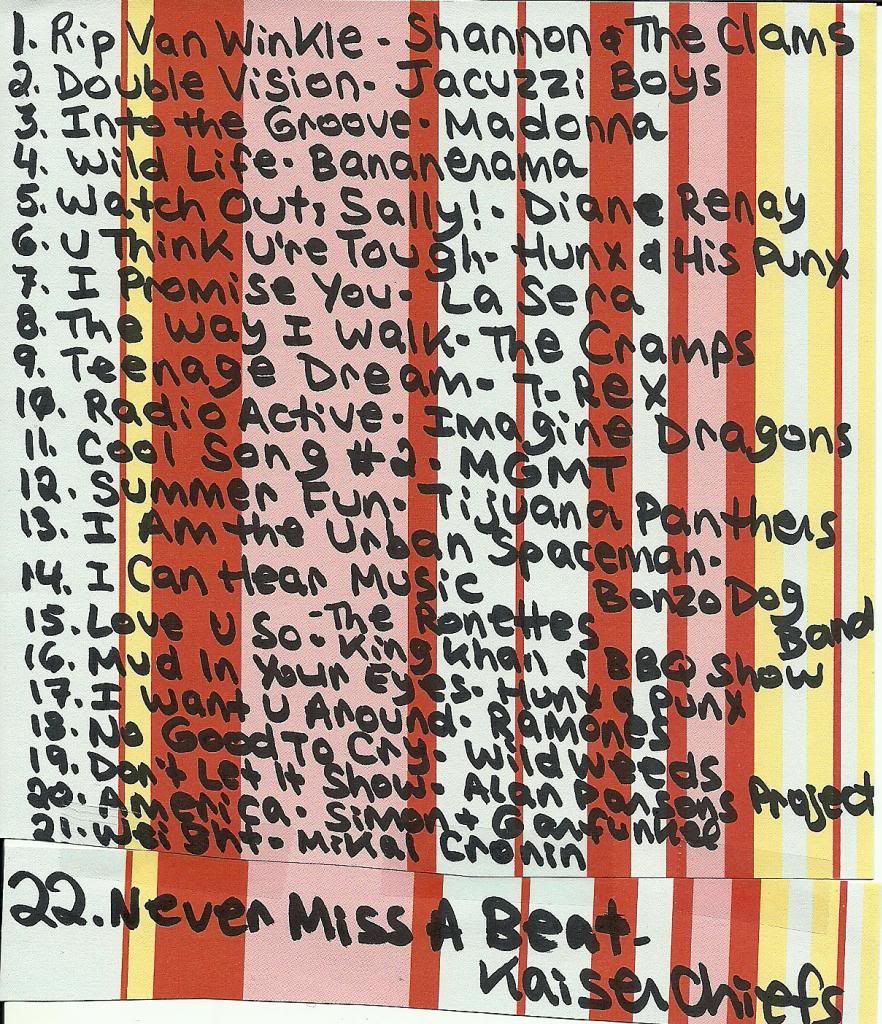 1. Rip Van Winkle - Shannon & The Clams
2. Double Vision - Jacuzzi Boys
3. Into the Groove - Madonna
4. Wild Life - Bananerama
5. Watch Out, Sally! - Diane Renay
6. U Think U're Tough - Hunx & His Punx
7. I Promise You - La Sera
8. The Way I Walk - The Cramps
9. Teenage Dream - T. Rex
10. Radio Active - Imagine Dragons
11. Cool Song #2 - MGMT
12. Summer Fun - Tijuana Panthers
13. I Am the Urban Spaceman -
Bonzo Dog
Band
14. I Can Hear Music
- The Ronettes
15. Love U So - King Khan & BBQ Show
16. Mud In Your Eyes - Hunx & Punx
17. I Want U Around - Ramones
18. No Good To Cry - Wildweeds
19. Don't Let It Show - Alan Parsons Project
20. America - Simon + Garfunkel
21. Weight - Mikal Cronin
22. Never Miss A Beat -
Kaiser Chiefs